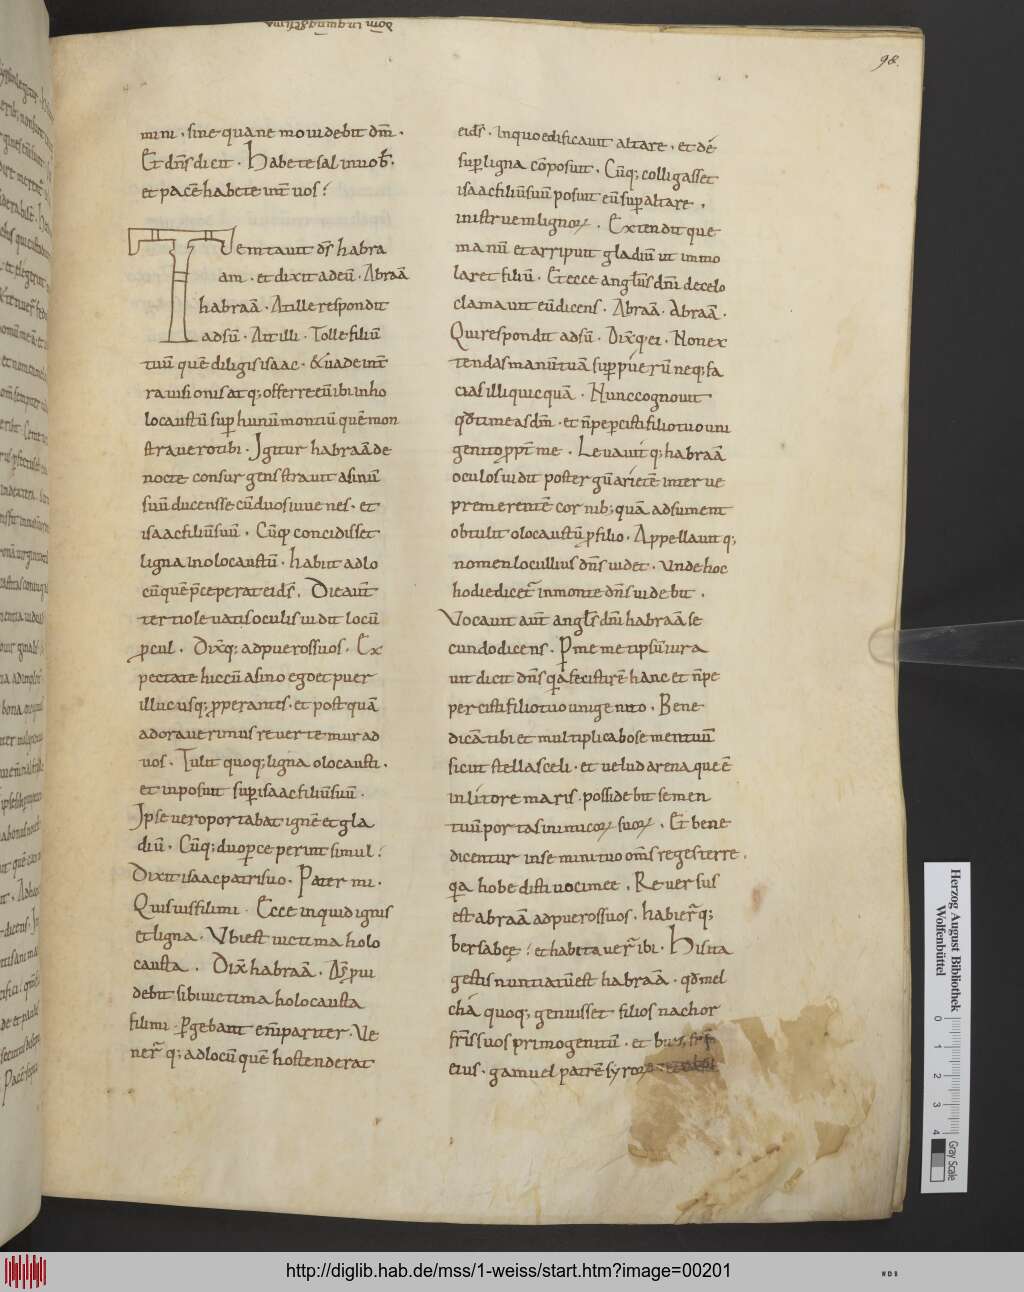 98.
mini · sine quane mo uidebit dm̄ ·
Et dn̄s dicit · Habete sal in uob̄ ·
et pacē habete int̄ uos ·
Temtauit dс̄ habra
am · et dixit ad eū · Abraā
habraā · At ille respondit
adsū · Ait illi · Tolle filiū
tuū quē diligis isaac · & uade int̄
ra uisionis atq; offerre eū ibi inho
locaustū sup̄ hunū montiū quē mon
strauero tibi · Igitur habraā de
nocte consurgens strauit asinū
suū ducensse cū duos iuuenes · et
isaac filiū suū · Cūq; concidisset
ligna in olocaustū · habiit ad lo
cū quē p̄ceperat ei ds̄ · Die aut̄
tertio leuatis oculis uidit locū
ꝓcul · Dix̄q; ad pueros suos · Ex
pectate hic cū asino ego et puer
illuc usq; ꝓperantes · et post quā
adorauerimus reuertemur ad
uos · Tulit quoq; ligna olocausti ·
et inposuit sup̄ isaac filiū suū ·
Ipse uero portabat ignē et gla
diū · Cūq; duo ꝑceperint simul ·
Dixit isaac patri suo · Pater mi ·
Quis uis fili mi · Ecce inquid ignis
et ligna · Vbi est uictima holo
causta · Dix̄ habraā · Ds̄ ꝓui
debit sibi uictima holocausta
fili mi · Pergebant em̄ pariter · Ve
ner̄ q; ad locū quē hostenderat
ei ds̄ · In quo edificauit altare · et de
sup̄ ligna cōposuit · Cūq; colligasset
isaac filiū suū posuit eū sup̄ altare ·
in struem lignoꝝ · Extendit que
manū et arripuit gladiū ut immo
laret filiū · Et ecce angls̄ dn̄i de celo
clamauit eū dicens · Abraā · Abraā ·
Qui respondit adsū · Dix̄q; ei · Non ex
tendas manū tuā sup̄ puerū neq; fa
cias illi quicquā · Nunc cognouit
qd̄ timeas dm̄ · et n̄ pepcisti filio tuo uni
genito ꝓpt̄ me · Leuauit q; habraā
oculos uidit post ergū arietē inter ue
pre merentē cornib; quā adsument
obtulit olocaustū ꝓ filio · Appellauit q;
nomen loc ullius dn̄s uidet · Vnde hoc
hodie dicet̄ in monte dn̄s uidebit ·
Vocauit aut̄ angls̄ dn̄i habraā se
cundo dicens · Pme metipsū iura
uit dicit dn̄s qa fecisti rē hanc et n̄ pe
percisti filio tuo unigenito · Bene
dicā tibi et multiplicabo semen tuū
sicut stellas celi · et uelud arena que ē
in litore maris · possidebit semen
tuū portas inimicoꝝ suoꝝ · Et bene
dicentur in semini tuo om̄s reges terre ·
qa hobedisti uoci mee · Reuersus
est abraā ad pueros suos · habier̄q;
bersabee · et habitauer̄ ibi · His ita
gestis nuntiatū est habraā · qd̄ mel
cha quoq; genuisset filios nachor
fr̄is suos primogenitū · et
eius · gamuel patrē syroꝝ
Herzog August Bibliothek
Wolfenbüttel
0 1 2 3 4
Gray Scale
http://diglib.hab.de/mss/1-weiss/start.htm?image=00201